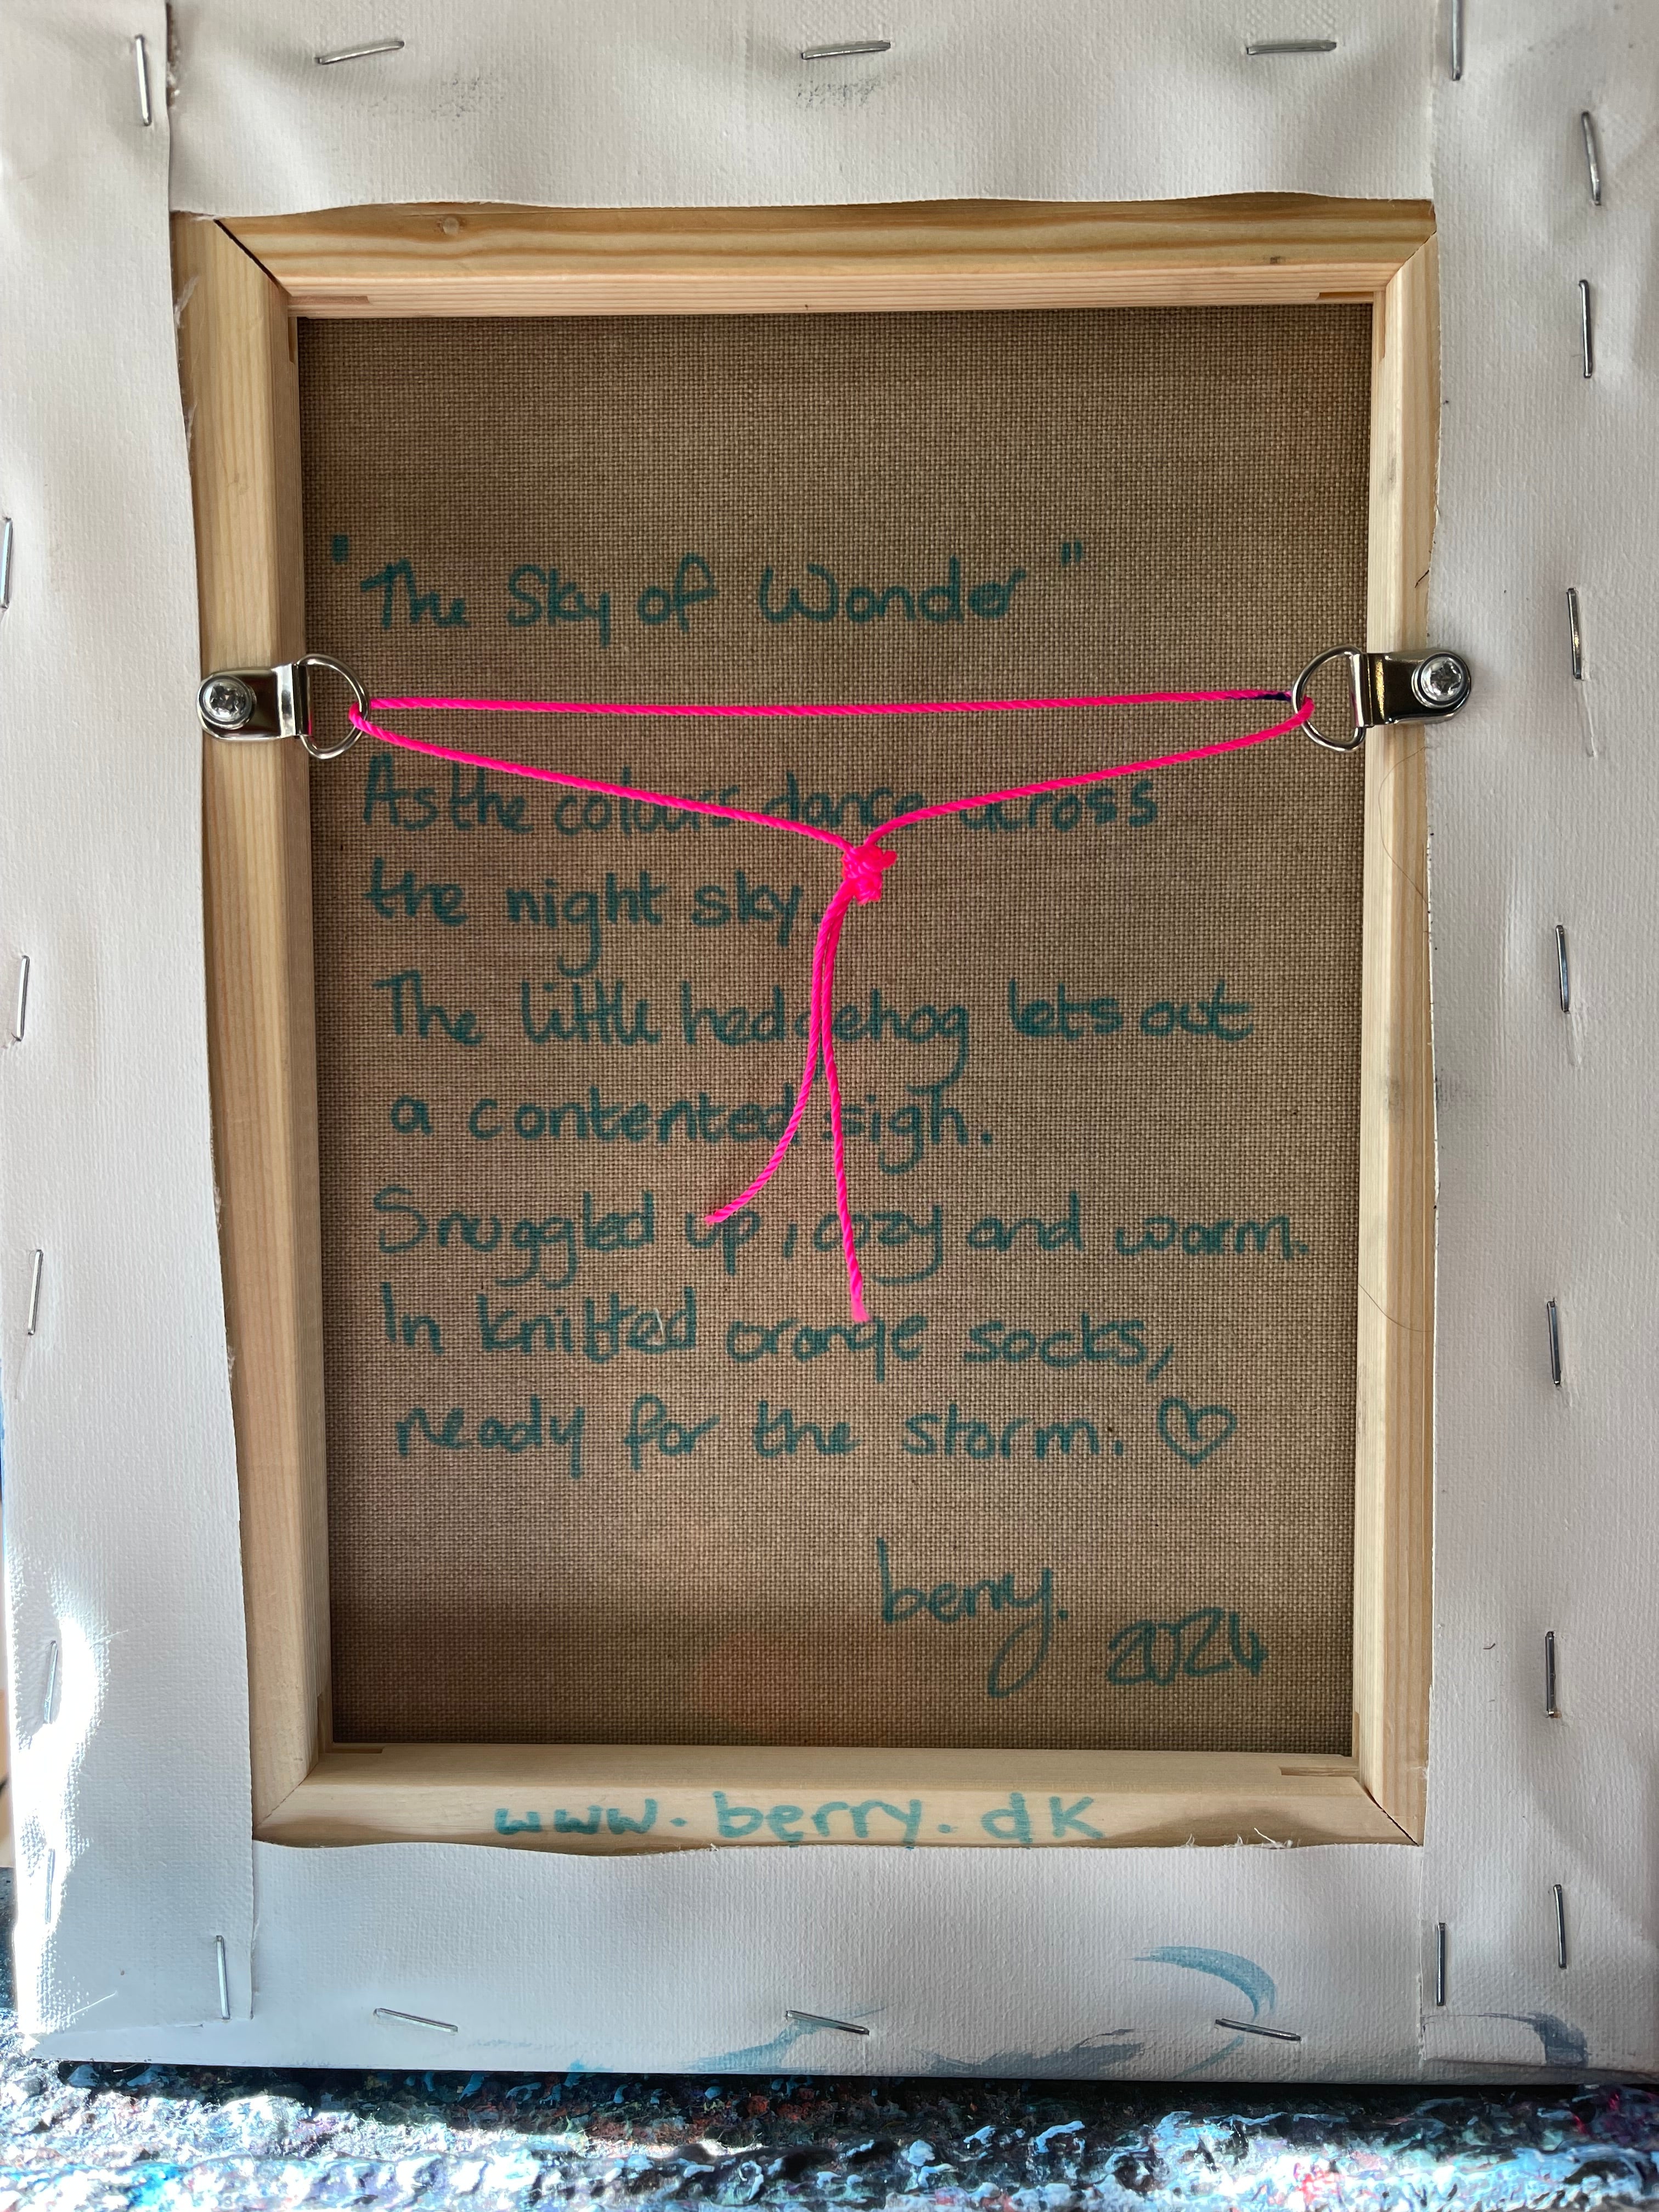 "The Sky of Wonder"
As the colours dance across
the night sky.
The little hedgehog lets out
a contented sigh.
Snuggled up, cozy and warm.
In knitted orange socks,
ready for the storm. ♡
berry.
2024
www.berry.dk